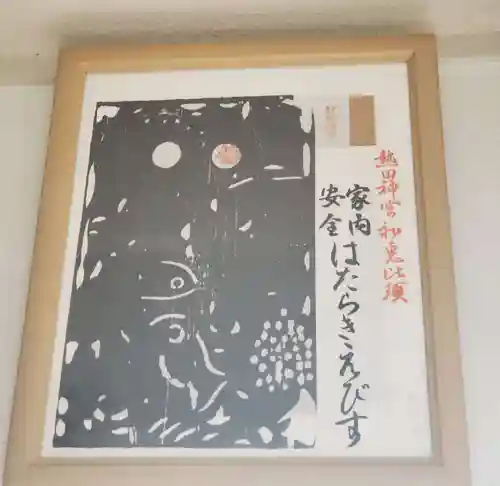 熱田神宮初恵比須
家内
安全
はたらきえびす